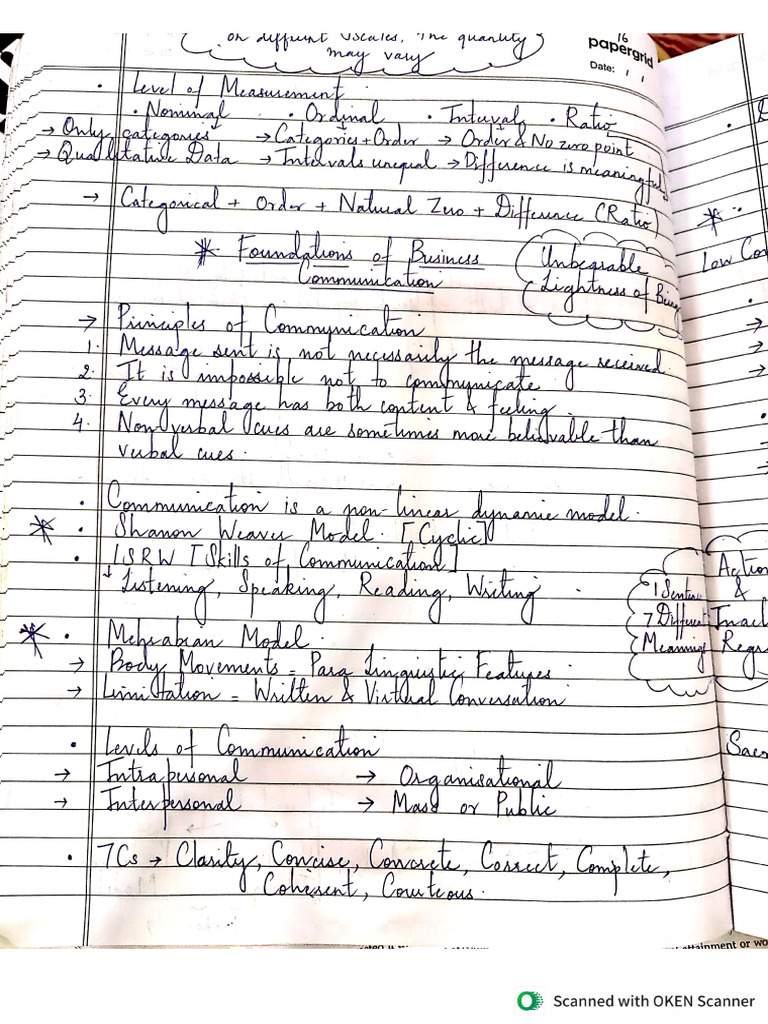 on different scales. The quantity
may vary
16
papergrid
Date: / /
• Level of Measurement
• Nominal • Ordinal • Interval • Ratio
→ Only categories → Categories + Order → Order & No zero point
→ Qualitative Data → Intervals unequal → Difference is meaningful
→ Categorical + Order + Natural Zero + Difference (Ratio)
* Foundations of Business
Communication
Unbearable
Lightness of Being
→ Principles of Communication
1. Message sent is not necessarily the message received.
2. It is impossible not to communicate.
3. Every message has both content & feeling.
4. Non verbal cues are sometimes more believable than
verbal cues.
• Communication is a non-linear dynamic model.
* • Shanon Weaver Model. [Cyclic]
• LSRW [Skills of Communication]
↓ Listening, Speaking, Reading, Writing
* • Mehrabian Model.
→ Body Movements = Para Linguistic Features.
→ Limitation = Written & Virtual Conversation
• Levels of Communication
→ Intrapersonal → Organisational
→ Interpersonal → Mass or Public
• 7Cs → Clarity, Concise, Concrete, Correct, Complete,
Coherent, Courteous.
Low
1 Sentence
7 Different
Meaning
Action
&
ttainment or wo
Scanned with OKEN Scanner